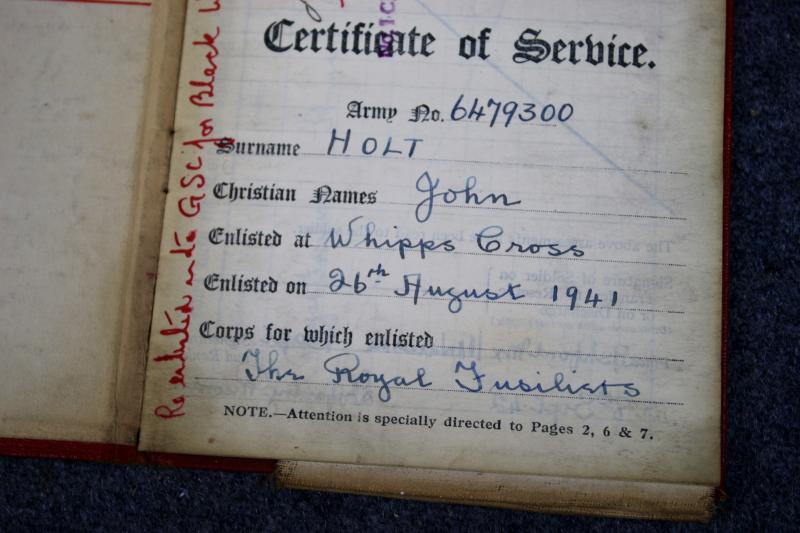 Certificate of Service.
Army No. 6479300
Surname HOLT
Christian Names John
Enlisted at Whipps Cross
Enlisted on 26th August 1941
Corps for which enlisted
The Royal Fusiliers
NOTE.—Attention is specially directed to Pages 2, 6 & 7.
Re enlisted into GSC for Black